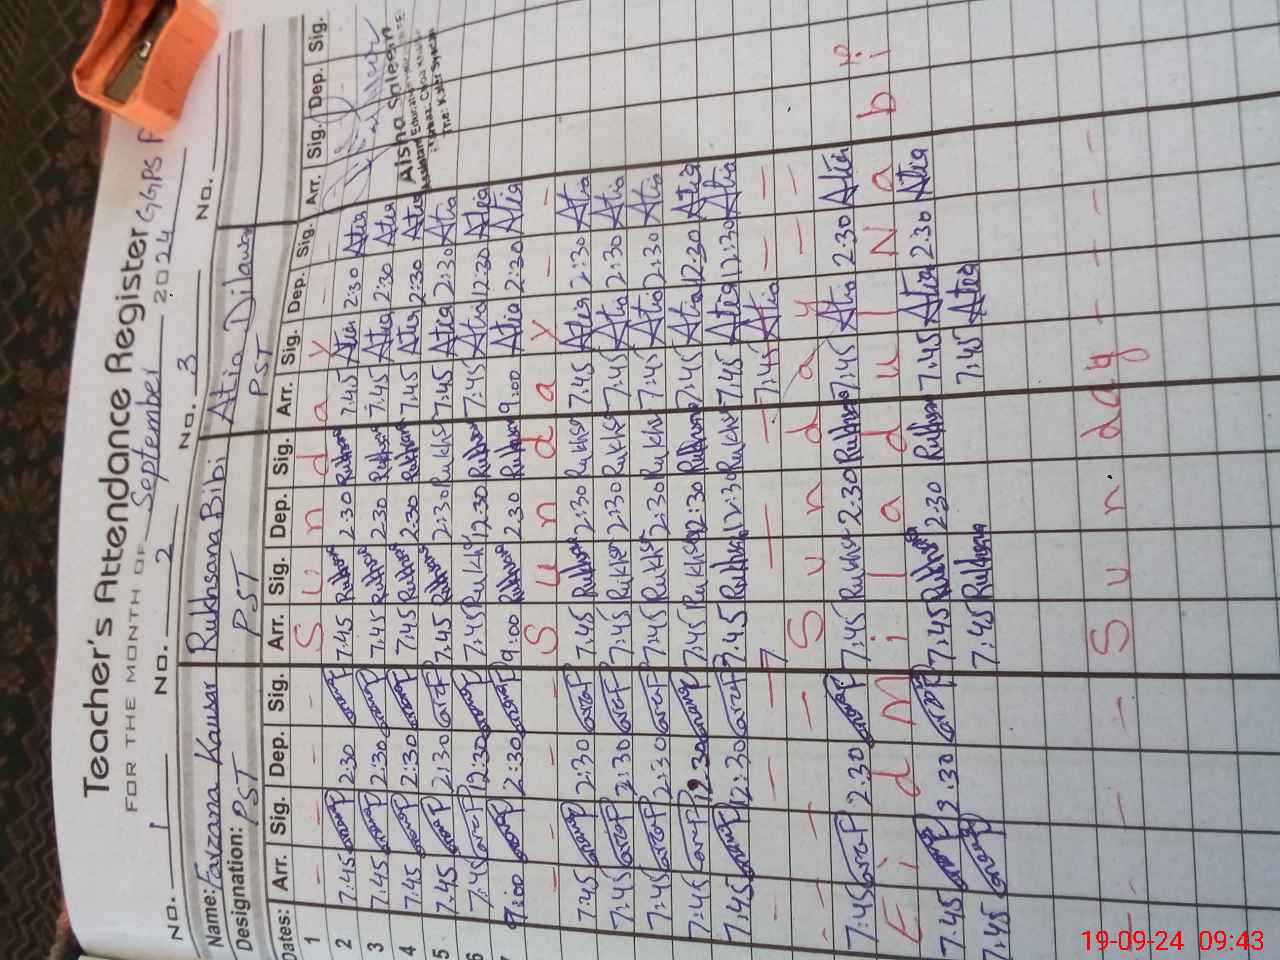 Teacher's Attendance Register GGPS
FOR THE MONTH OF September 2024
No. 1 No. 2 No. 3 No.
Name: Farzana Kausar Rukhsana Bibi Atia Dilawar
Designation: PST PST PST
Dates: Arr. Sig. Dep. Sig. Arr. Sig. Dep. Sig. Arr. Sig. Dep. Sig. Arr. Sig. Dep. Sig.
1 - - - - S u n d a y - -
2 7:45 2:30 7:45 Rukhsana 2:30 Rukhsana 7:45 Atia 2:30 Atia
3 7:45 2:30 7:45 Rukhsana 2:30 Rukhsana 7:45 Atia 2:30 Atia
4 7:45 2:30 7:45 Rukhsana 2:30 Rukhsana 7:45 Atia 2:30 Atia
5 7:45 2:30 7:45 Rukhsana 2:30 Rukhsana 7:45 Atia 2:30 Atia
6 7:45 12:30 7:45 Rukhsana 12:30 Rukhsana 7:45 Atia 12:30 Atia
9:00 2:30 9:00 Rukhsana 2:30 Rukhsana 9:00 Atia 2:30 Atia
- - - - S u n d a y - -
7:45 2:30 7:45 Rukhsana 2:30 Rukhsana 7:45 Atia 2:30 Atia
7:45 2:30 7:45 Rukhsana 2:30 Rukhsana 7:45 Atia 2:30 Atia
7:45 2:30 7:45 Rukhsana 2:30 Rukhsana 7:45 Atia 2:30 Atia
7:45 12:30 7:45 Rukhsana 12:30 Rukhsana 7:45 Atia 12:30 Atia
7:45 12:30 7:45 Rukhsana 12:30 Rukhsana 7:45 Atia 12:30 Atia
- - - 7 - - 7:45 Atia - -
- - - S u n d a y - -
7:45 2:30 7:45 Rukhsana 2:30 Rukhsana 7:45 Atia 2:30 Atia
E i d M i l a d u l N a b i
7:45 2:30 7:45 Rukhsana 2:30 Rukhsana 7:45 Atia 2:30 Atia
7:45 7:45 Rukhsana 7:45 Atia
- - - - S u n d a y - - - -
Aisha Saleem
Assistant Education
19-09-24 09:43